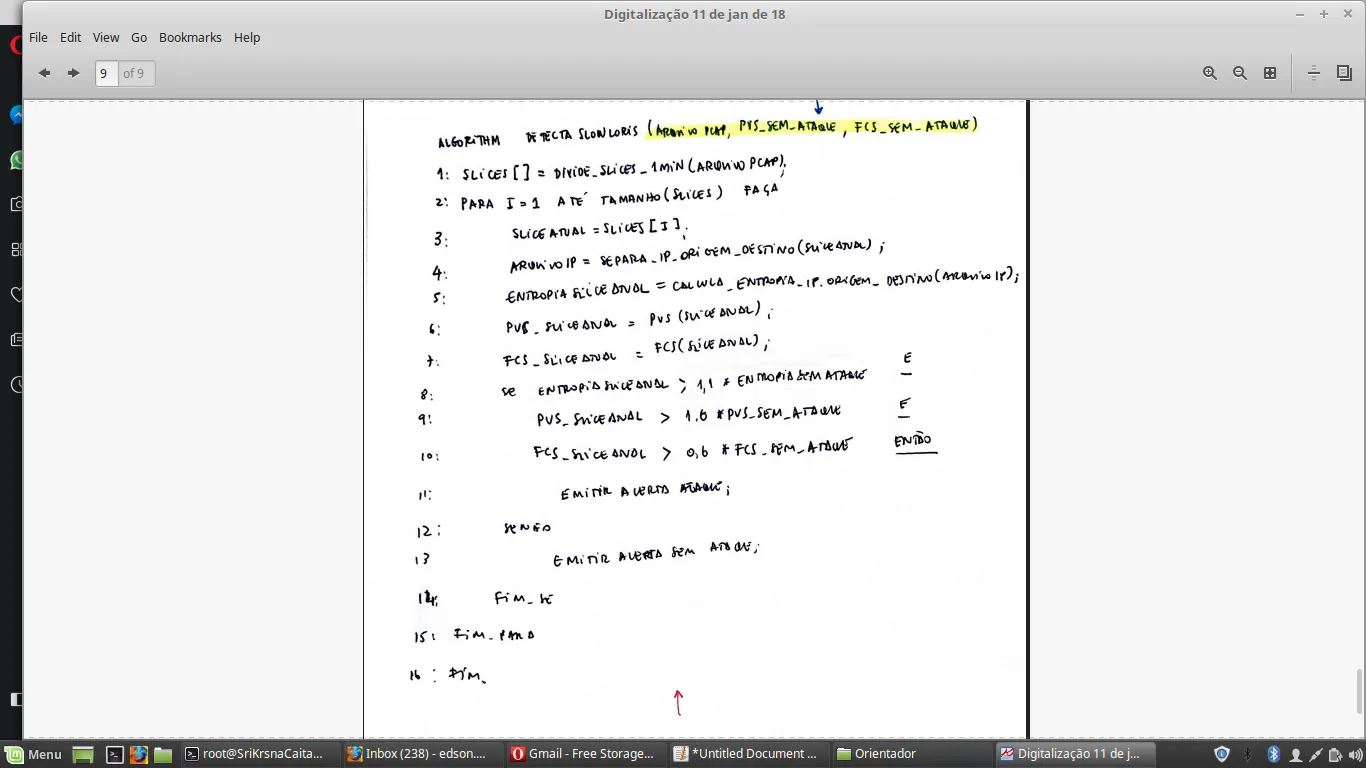 Digitalização 11 de jan de 18
File Edit View Go Bookmarks Help
9 of 9
ALGORITHM DETECTA SLOWLORIS (ARQUIVO PCAP, PVS_SEM_ATAQUE, FCS_SEM_ATAQUE)
1: SLICES[] = DIVIDE_SLICES_1MIN(ARQUIVO PCAP);
2: PARA I=1 ATÉ TAMANHO(SLICES) FAÇA
3: SLICEATUAL = SLICES[I];
4: ARQUIVO IP = SEPARA_IP_ORIGEM_DESTINO(SLICEATUAL);
5: ENTROPIASLICEATUAL = CALCULA_ENTROPIA_IP.ORIGEM_DESTINO(ARQUIVO IP);
6: PVS_SLICEATUAL = PVS(SLICEATUAL);
7: FCS_SLICEATUAL = FCS(SLICEATUAL);
8: SE ENTROPIASLICEATUAL > 1,1 * ENTROPIASEMATAQUE E
9: PVS_SLICEATUAL > 1.6 * PVS_SEM_ATAQUE E
10: FCS_SLICEATUAL > 0,6 * FCS_SEM_ATAQUE ENTÃO
11: EMITIR ALERTA ATAQUE;
12: SENÃO
13 EMITIR ALERTA SEM ATAQUE;
14: FIM_SE
15: FIM_PARA
16: FIM.
Menu root@SriKrsnaCaita... Inbox (238) - edson.... Gmail - Free Storage... *Untitled Document ... Orientador Digitalização 11 de j...